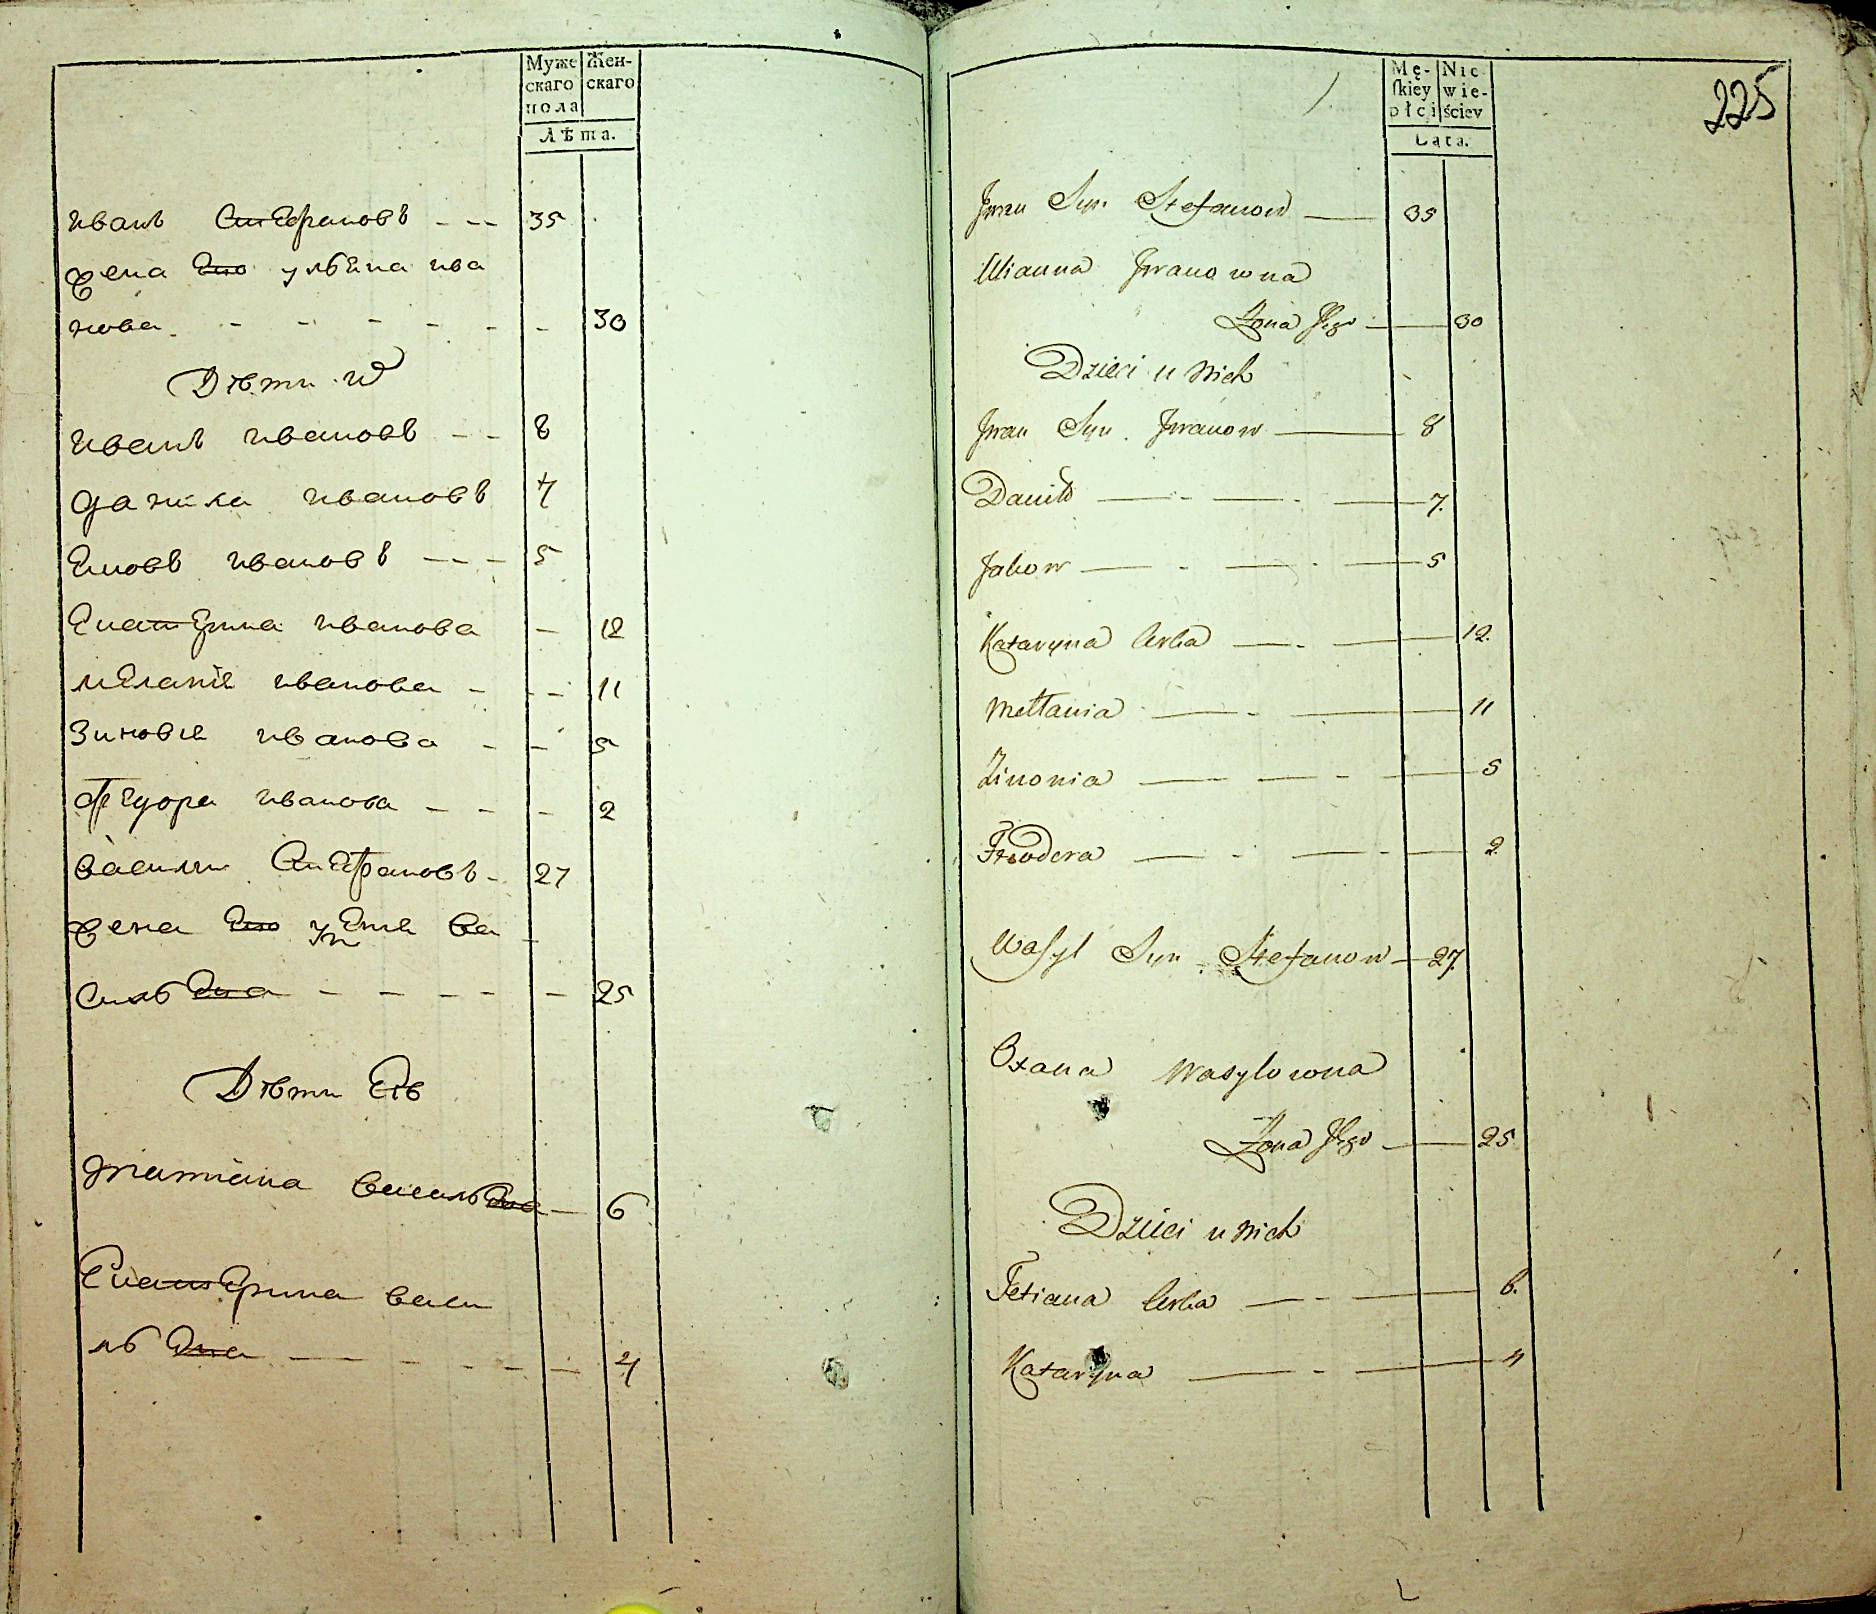 Муже
скаго
пола
Жен-
скаго
Лѣта.
иванъ Стефановъ - - - 35
жена Его улѣяна ива
нова - - - - - - 30
Дѣти
иванъ ивановъ - - 8
данила ивановъ 7
Яковъ ивановъ - - - 5
Екатерина иванова - 12
меланіе иванова - - - 11
Зиновіе иванова - - 5
Федора иванова - - - 2
василии Стефановъ - 27
жена Его ва
сильева - - - - - 25
Дѣти Еѣ
татіана васильева - 6
Екатерина васи
льева - - - - - - 4
Mę-
skiey
płci
Nie
wie-
ściey
Lata.
225
Jwan Syn Stefanow — 35
Ulianna Jwanowna
Żona Jego — 30
Dzieci u nich
Jwan Syn Jwanow — 8
Daniło — - — - — 7.
Jakow — - — - — 5
Kataryna Corka — - — 12.
Mełania — - — 11
Zinowia — - — - — 5
Teodora — - — - — 2
Wasyl Syn Stefanow — 27.
Oxana Wasylowna
Żona Jego — 25
Dzieci u nich
Tetiana Corka — - — 6.
Kataryna — - — 4